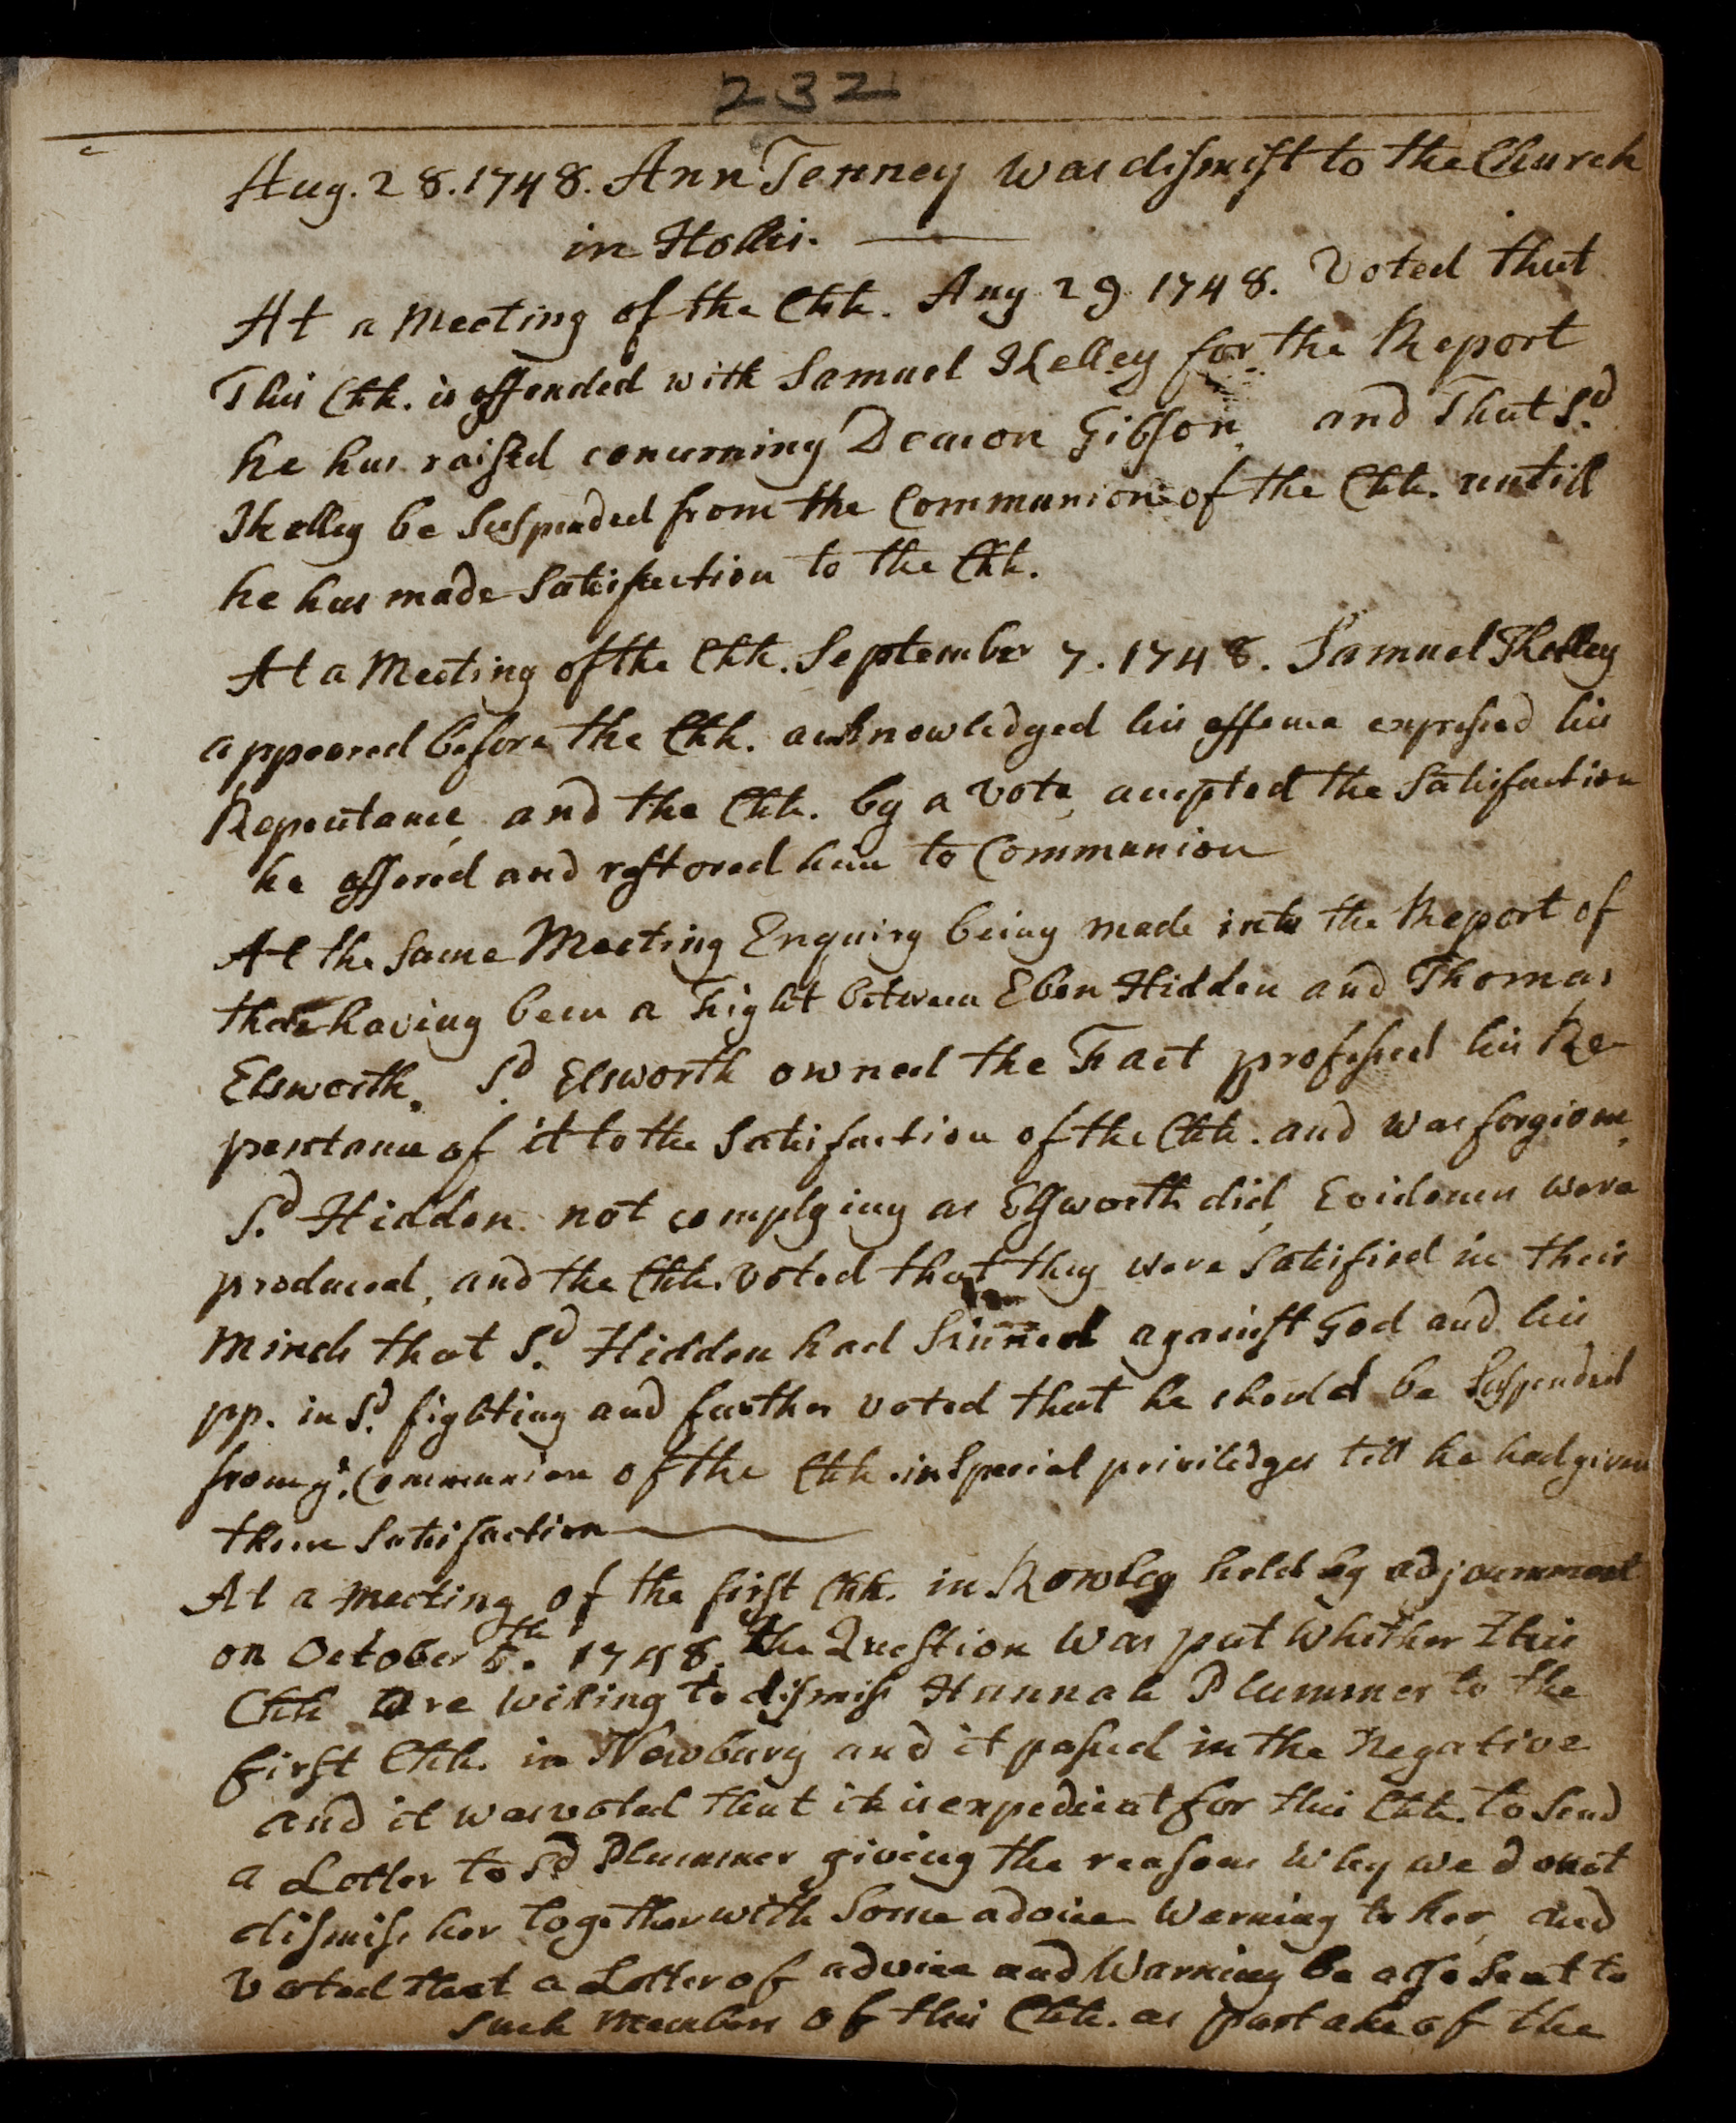 232
Aug. 28. 1748. Ann Tenney was dismist to the Church
in Hollis.
At a Meeting of the Chh. Aug 29 1748. Voted that
This Chh. is offended with Samuel Skelley for the Report
he has raised concerning Deacon Gibson, and That Sd.
Skelley be Suspended from the Communion of the Chh. untill
he has made Satisfaction to the Chh.
At a Meeting of the Chh. September 7. 1748. Samuel Skelley
appeared before the Chh. acknowledged his offence expressed his
Repentance, and the Chh. by a Vote, accepted the Satisfaction
he offered and restored him to Communion
At the Same Meeting Enquiry being made into the Report of
there having been a Fight between Eben Hidden and Thomas
Elsworth. Sd. Elsworth owned the Fact professed his Re-
pentance of it to the Satisfaction of the Chh. and was forgiven,
Sd. Hidden not complying as Elsworth did, Evidences were
produced, and the Chh. voted that they were Satisfied in their
Minds that Sd. Hidden had Sinned against God and his
pp. in Sd. fighting and further voted that he should be Suspended
from ye. Communion of the Chh. in Special priviledges till he had given
them Satisfaction
At a Meeting of the first Chh. in Rowley held by adjournment
on October 5th. 1748. The Question was put Whether This
Chh are willing to dismiss Hannah Plummer to the
first Chh. in Newbury and it passed in the Negative
and it was voted that it is expedient for this Chh. to Send
a Letter to Sd Plummer giving the reasons Why we do not
dismiss her together with Some advice Warning to her, and
Voted that a Letter of advice and Warning be also Sent to
Such Members of this Chh. as partake of the